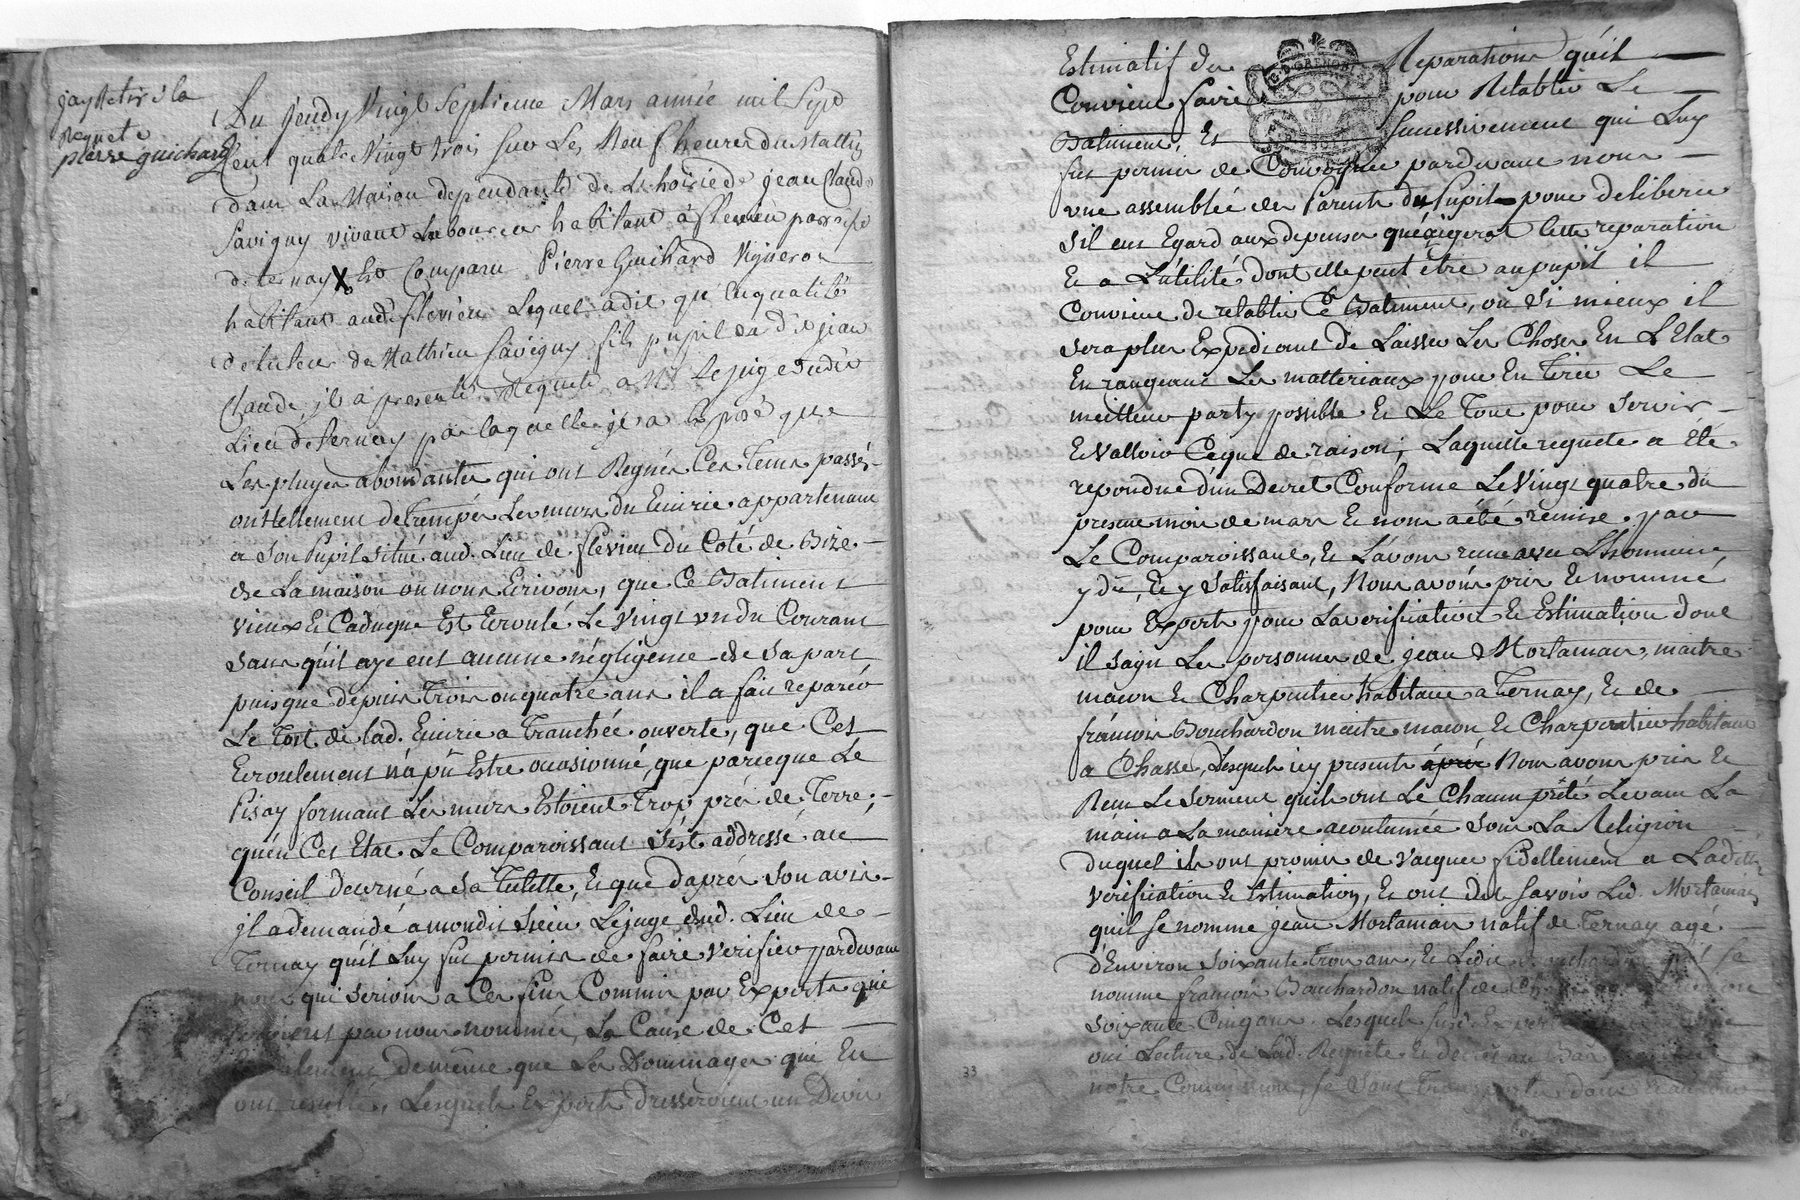 jay Retiré la
requete
pierre guichard
Du jeudy Vingt Septieme Mars année mil Sept
Cent quatre Vingt trois sur Les Neuf heures du Mattin
dans La Maison dependante de Lhoirie de jean Claude
Savigny vivant Laboureur habitant à flevieu parroisse
de ternay X Est Comparu Pierre Guichard Vigneron
habitant aud. flevieu Lequel a dit qu'en qualité
de tuteur de Mathieu Savigny fils pupil dud. jean
Claude, il à presenté Requete a Mr Le juge dudit
Lieu de ternay par laquelle il a Exposé que
Les pluyes abondantes qui ont Regnés Ces Tems passés
ont tellement detrempés Les murs du Cuirie appartenant
a Son Pupil Situé aud. Lieu de flevieu du Coté de Bize
de La maison ou nous Ecrivons, que Ce Batiment
vieux Et Caduque Est Ecroulé Le Vingt un du Courant
sans qu'il aye eut aucune négligense de sa part
puisque depuis Trois ou quatre ans il a fait reparér
Le Toit de lad. Cuirie a Tranchée ouverte, que Cet
Ecroulement n'a pû Estre occasionné, que parceque Le
Pisay formant Les murs Etoient Trop près de Terre,
qu'en Cet Etat Le Comparoissant S'est addressé au
Conseil decerné a Sa Tutelle, Et que d'aprés Son avis
jl a demandé a mondit Sieur Lejuge dud. Lieu de
Ternay qu'il Luy fut permis de faire verifier pardevant
nous qui serions a Ces fins Commis par Experts qui
seroient par nous nommés, La Cause de Cet
Ecroulement de même que Les Dommages qui En
ont resulté, Lesquels Experts dresseroient un Devis
Estimatif des Reparations qu'il
Convient faire pour Retablir Le
Batiment, Et Successivement qui Luy
fut permis de Convoquer pardevant nous
une assemblée des Parents du Pupil pour deliberer
S'il eut Egard aux depenses qu'éxigera Cette reparation
Et a L'utilité dont elle peut être au pupil il
Convient de retablir Ce Batiment, ou Si mieux il
sera plus Expediant de Laisser Les Choses En L'Etat
En rangeant Les matteriaux pour En tirer Le
meilleur party possible Et Le Tout pour Servir
Et Valloir Ce que de raison; Laquelle requete a Eté
repondue d'un Decret Conforme Le Vingt quatre du
present mois de mars Et nous a été remise par
Le Comparoissant, Et L'avons receu avec L'honneur
y du, Et y Satisfaisant, Nous avons pris Et nommé
pour Experts pour La verification Et Estimation dont
il s'agit Les personnes de jean Mortaman, maitre
macon Et Charpentier habitant a Ternay, Et de
françois Bouchardon maitre macon Et Charpentier habitant
a Chasse, Lesquels icy presents après Nous avons pris Et
Receu Le Serment qu'ils ont Le Chacun prêté Levant La
main a La maniere acoutumée Sous La Religion
duquel ils ont promis de Vacquer fidellement a Laditte
verification Et Estimation, Et ont dit Savoir Led. Mortaman
qu'il Se nomme jean Mortaman natif de Ternay agé
d'Environ soixante trois ans, Et Ledit Bouchardon qu'il se
nomme françois Bouchardon natif de
Soixante Cinq ans. Lesquels susd. Experts
ont Lecture de Lad. Requete Et decret au Bas
notre Commission, se Sont Transportés dans
33